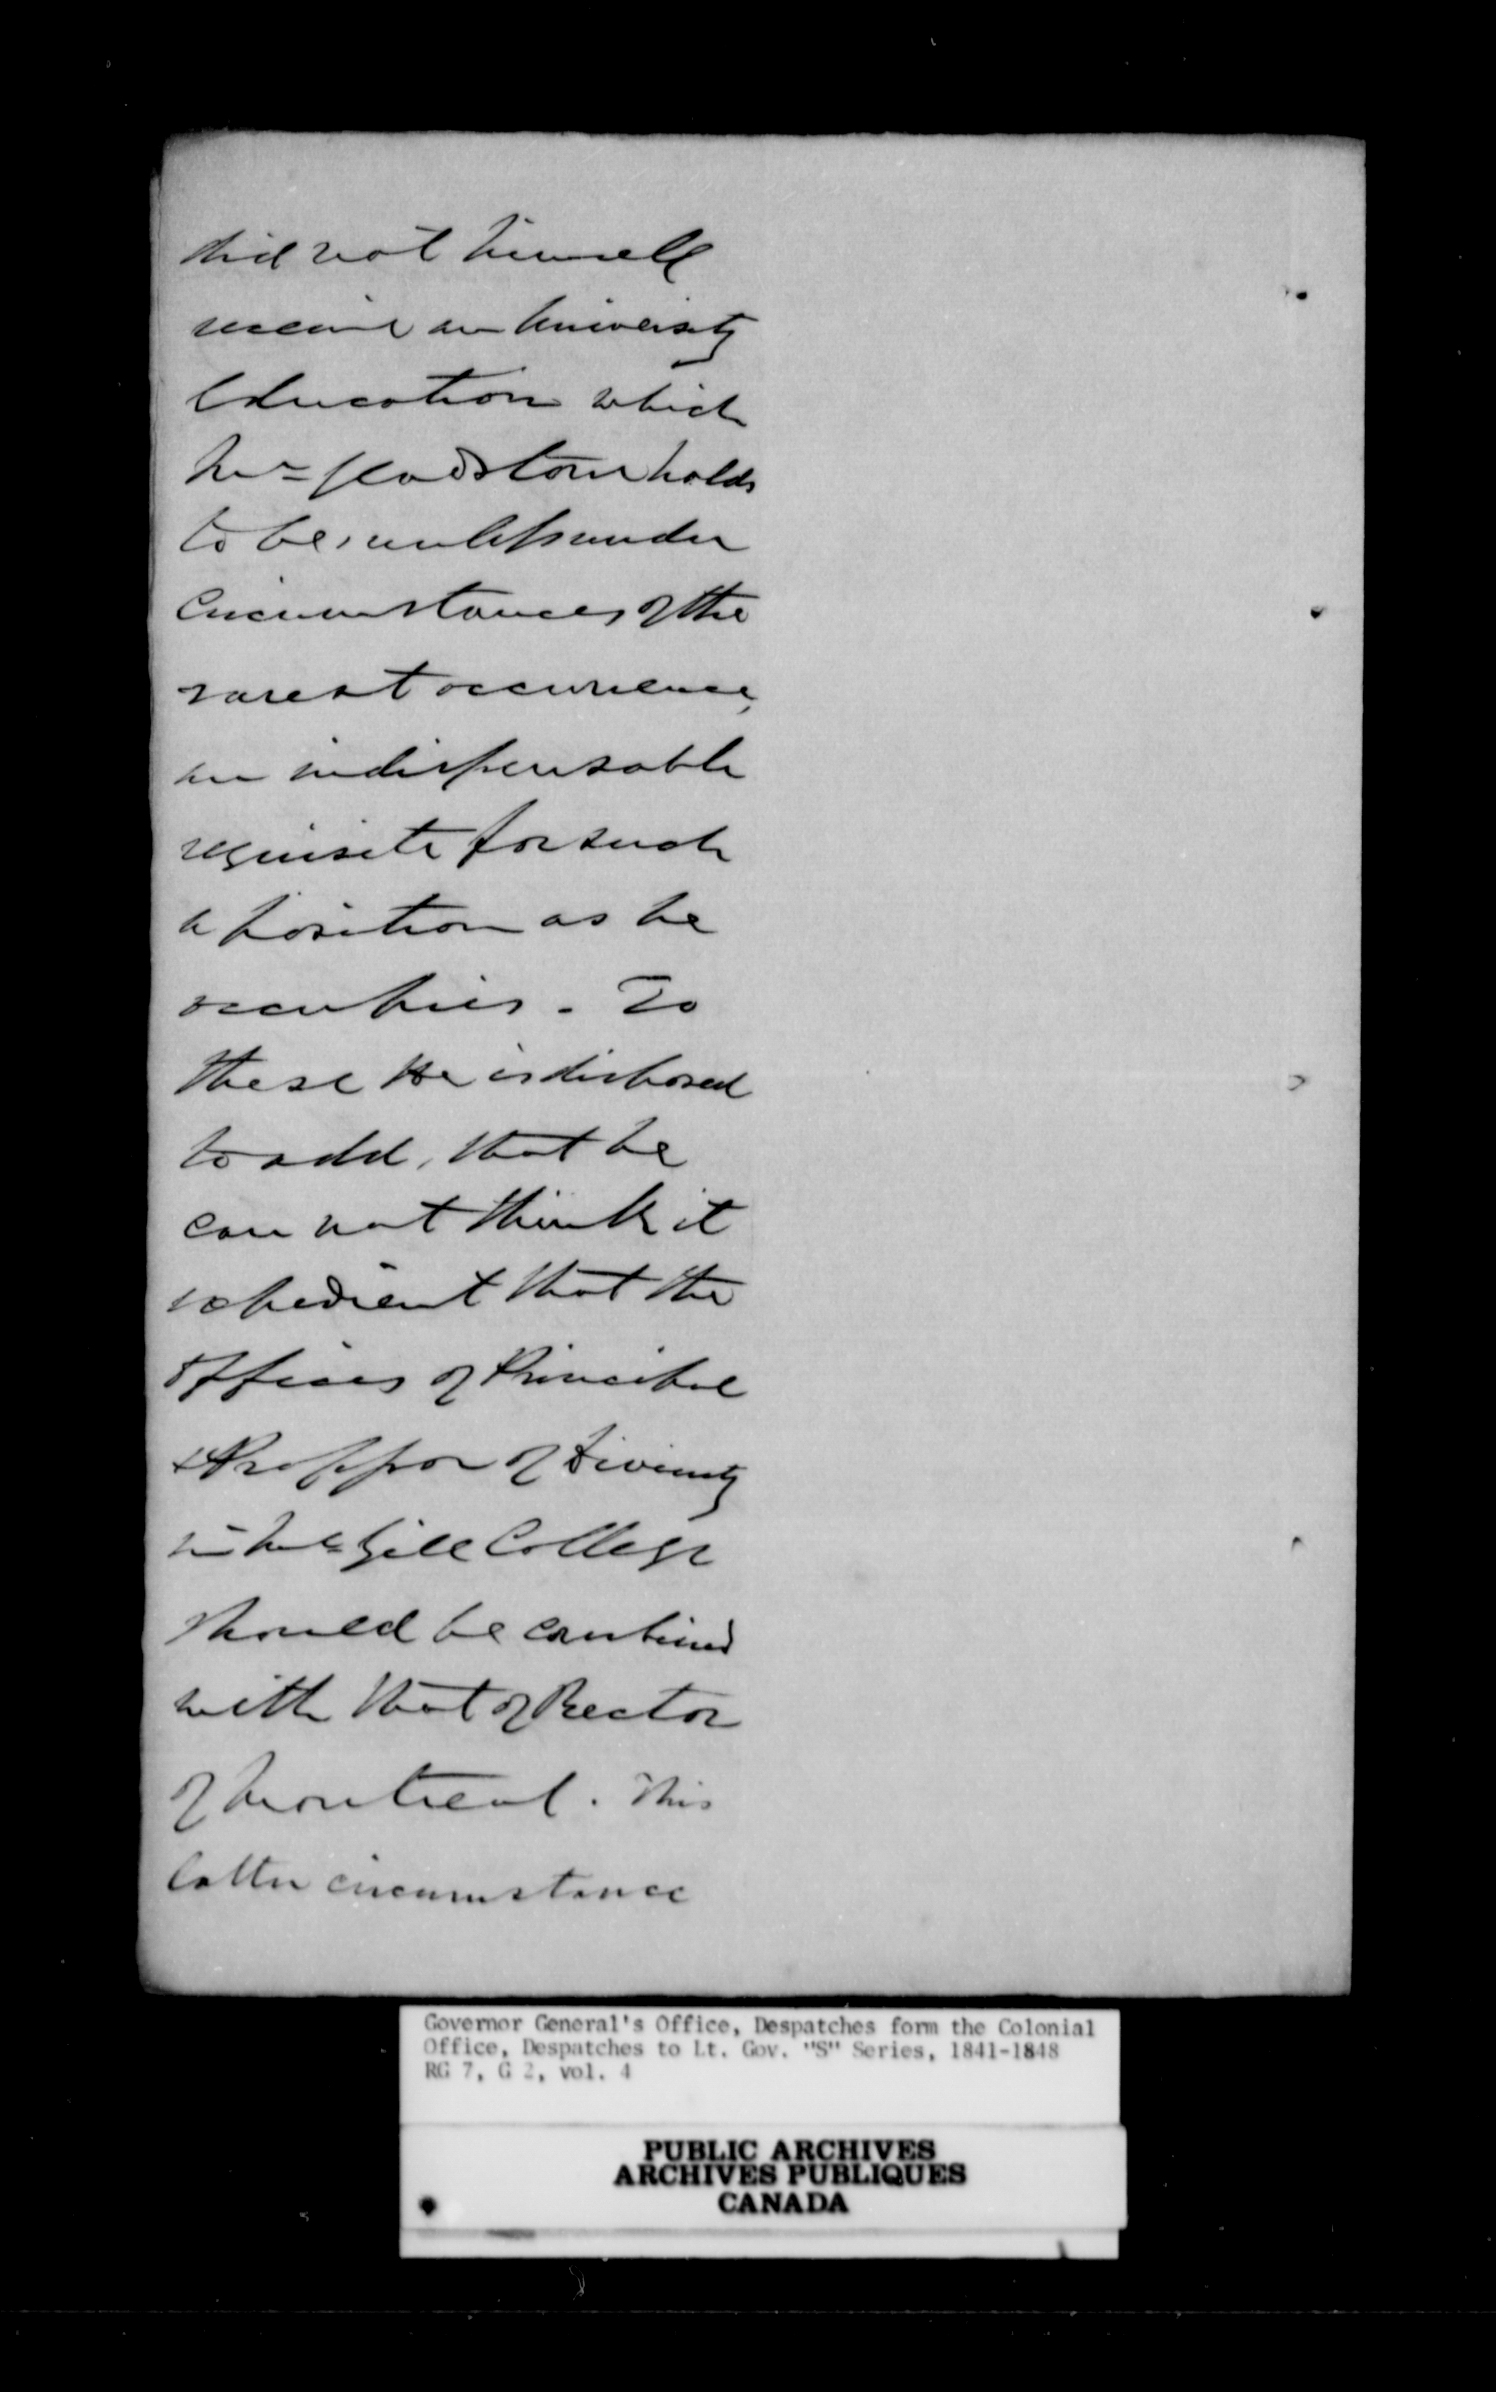 did not himself
receive an University
Education which
Mr Gladstone holds
to be, unless under
Circumstances of the
rarest occurrence,
an indispensable
requisite for such
a position as he
occupies. To
these He is disposed
to add, that he
can not think it
expedient that the
Offices of Principal
& Professor of Divinity
in McGill College
should be combined
with that of Rector
of Montreal. This
latter circumstance
Governor General's Office, Despatches form the Colonial
Office, Despatches to Lt. Gov. "S" Series, 1841-1848
RG 7, G 2, vol. 4
PUBLIC ARCHIVES
ARCHIVES PUBLIQUES
CANADA